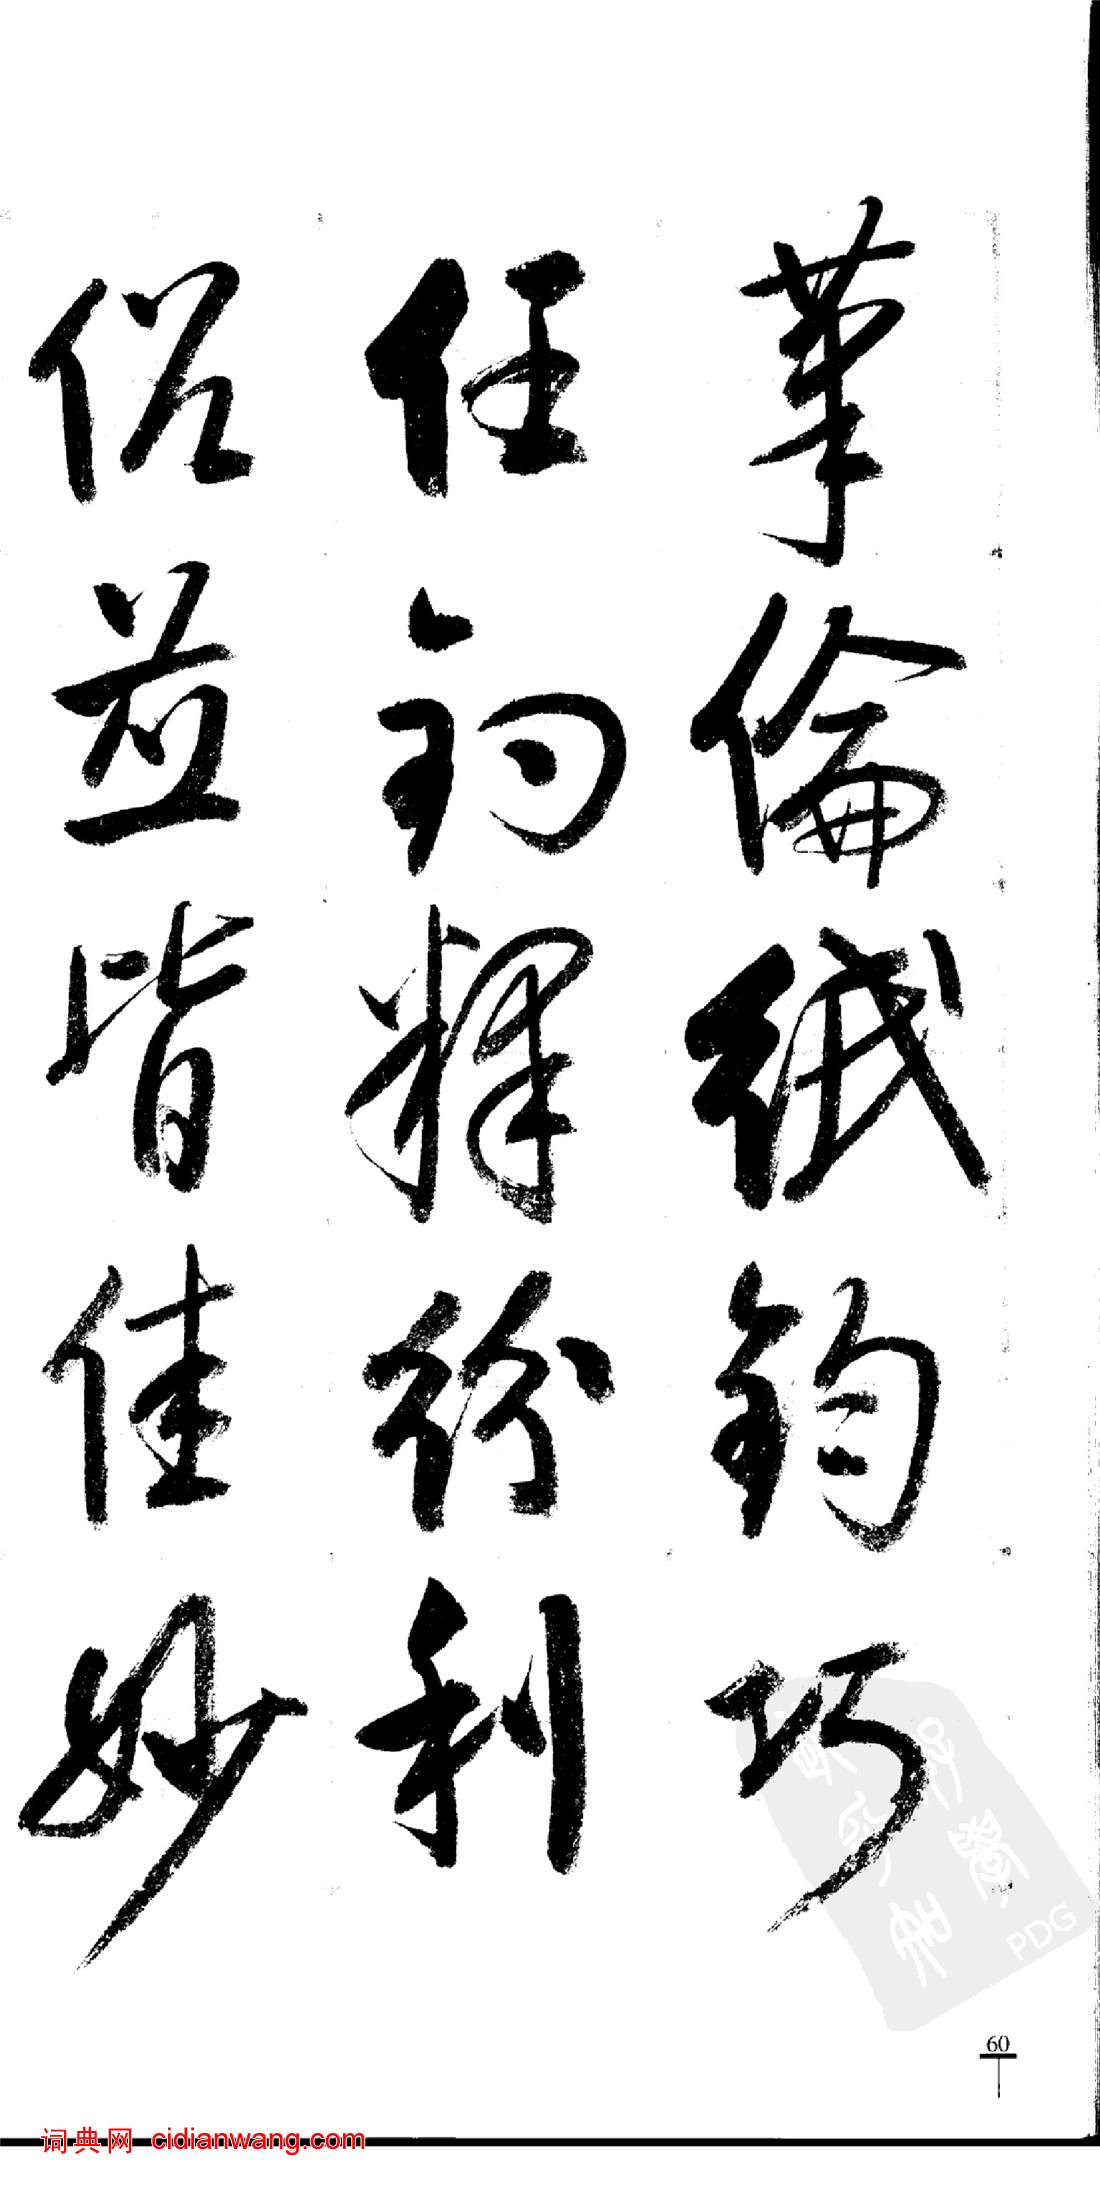 筆倫紙鈞巧
任釣釋紛利
俗並皆佳妙
60
词典网 cidianwang.com
PDG